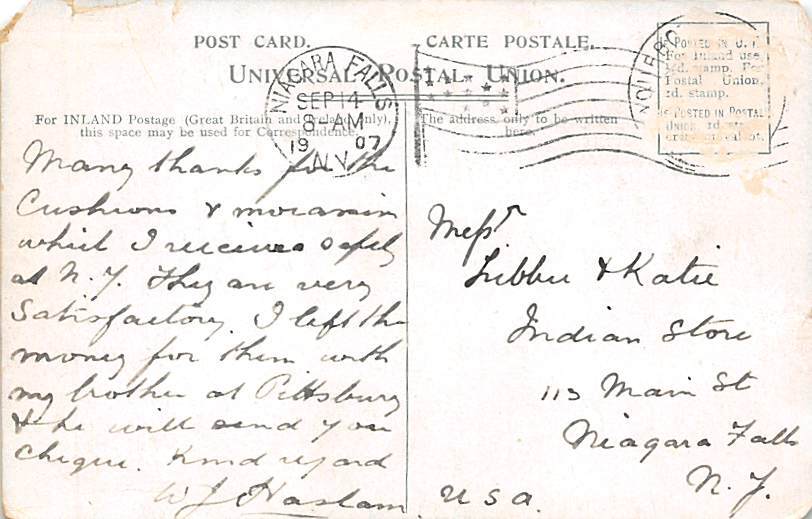 POST CARD.
CARTE POSTALE.
UNIVERSAL POSTAL UNION.
For INLAND Postage (Great Britain and Ireland only),
this space may be used for Correspondence.
The address only to be written
here.
NIAGARA FALLS
SEP 14
8-AM
19 07
N.Y.
IF POSTED IN U.K.
For inland use,
½d. stamp. For
Postal Union,
1d. stamp.
IF POSTED IN POSTAL
UNION 1d
Many thanks for the
Cushions & mocassin
which I received safely
at N.Y. They are very
Satisfactory. I left the
money for them with
my brother at Pittsburg
& he will send you
cheque. Kind regard
WJ Haslam
Messr
Libbie & Katie
Indian Store
113 Main St
Niagara Falls
N.Y.
USA.